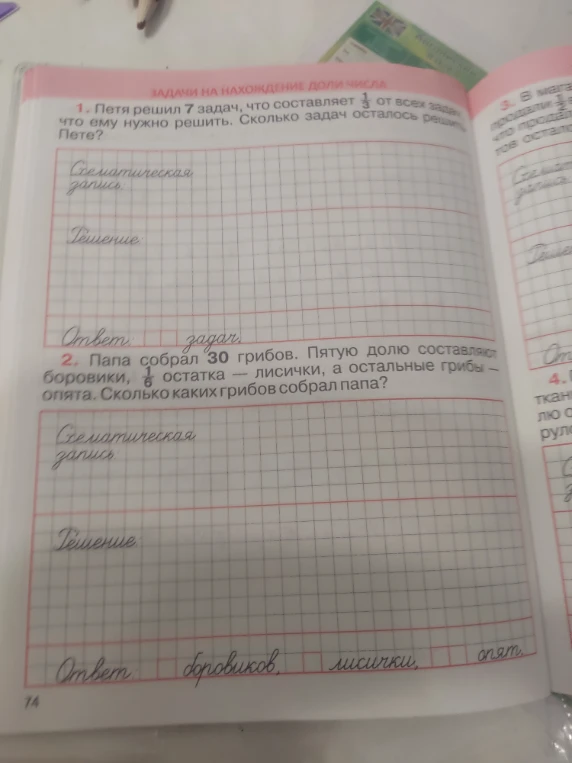 ЗАДАЧИ НА НАХОЖДЕНИЕ ДОЛИ ЧИСЛА
1. Петя решил 7 задач, что составляет 1/3 от всех задач
что ему нужно решить. Сколько задач осталось решить
Пете?
Схематическая
запись.
Решение.
Ответ: задач.
2. Папа собрал 30 грибов. Пятую долю составляют
боровики, 1/6 остатка — лисички, а остальные грибы —
опята. Сколько каких грибов собрал папа?
Схематическая
запись
Решение.
Ответ: боровиков, лисички, опят.
74
3. В мага
продали 1/2
что продал
тов остало
4.
ткани
лю о
руло